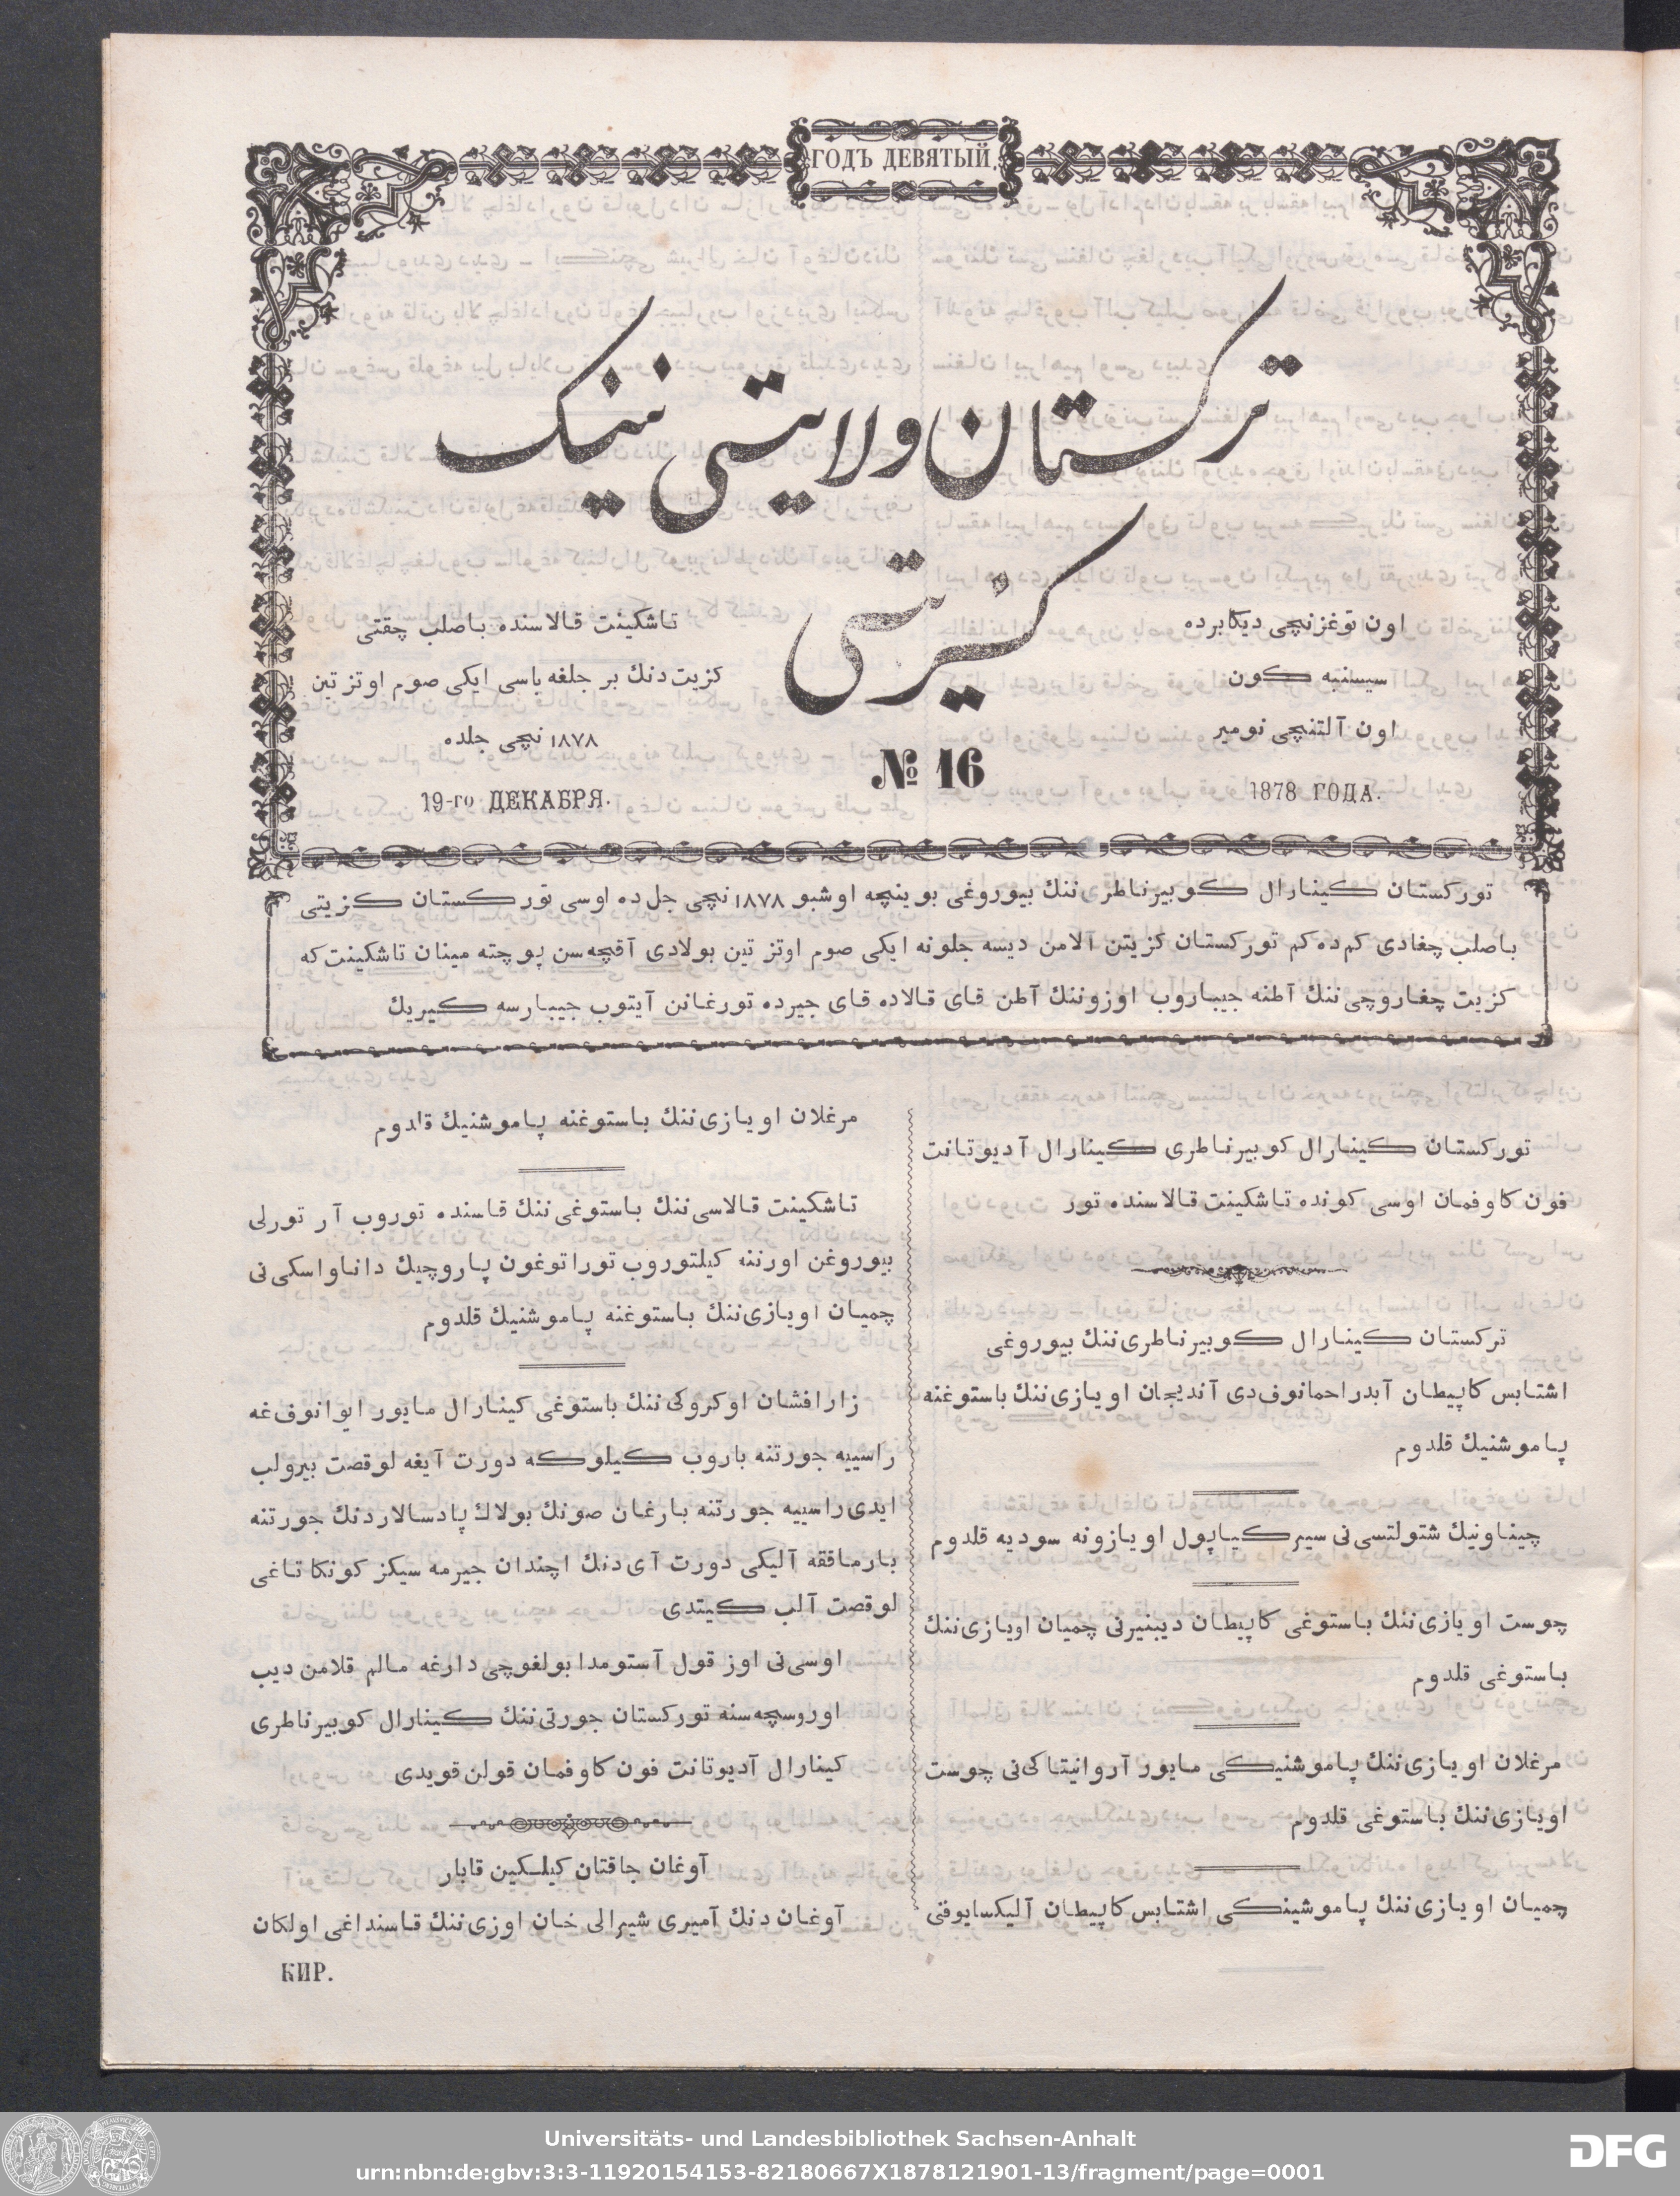 ГОДЪ ДЕВЯТЫЙ.
ترکستان ولایتی نینک
کزیتی
اون توغزنچی دیکابرده
سیسنبه کون
اون آلتنچی نومیر
1878 ГОДА.
№ 16
تاشکینت قالاسنده باصلب چقتی
کزیت دنك بر جلغه باسی ایکی صوم اوتز تین
۱۸۷۸ نچی جلده
19-го ДЕКАБРЯ.
تورکستان کینارال کوبیرناطری ننك بیوروغی بوینچه اوشبو ۱۸۷۸ نچی جل ده اوسی تورکستان کزیتی
باصلب چغادی کم ده کم تورکستان کزیتن آلامن دیسه جلونه ایکی صوم اوتز تین بولادی آقچه سن پوچته مینان تاشکینت که
کزیت چغاروچی ننك آطنه جیباروب اوزوننك آطن قای قالاده قای جیرده تورغانن آیتوب جیبارسه کیریك
تورکستان کینارال کوبیرناطری کینارال آدیوتانت
فون کاوفمان اوسی کونده تاشکینت قالاسنده تور
ترکستان کینارال کوبیرناطری ننك بیوروغی
اشتابس کاپیطان آبدراحمانوف دی آندیجان اویازی ننك باستوغنه
پاموشنیك قلدوم
چیناونیك شتولتسی نی سیرکیاپول اویازونه سودیه قلدوم
چوست اویازی ننك باستوغی کاپیطان دیبنیرنی چمیان اویازی ننك
باستوغی قلدوم
مرغلان اویازی ننك پاموشنیکی مایور آروانیتاکی نی چوست
اویازی ننك باستوغی قلدوم
چمیان اویازی ننك پاموشینکی اشتابس کاپیطان آلیکسایوفنی
مرغلان اویازی ننك باستوغنه پاموشنیك قلدوم
تاشکینت قالاسی ننك باستوغی ننك قاسنده توروب آر تورلی
بیوروغن اورننه کیلتوروب توراتوغون پاروچیك داناواسکی نی
چمیان اویازی ننك باستوغنه پاموشنیك قلدوم
زارافشان اوکروکی ننك باستوغی کینارال مایور ایوانوف غه
راسییه جورتنه باروب کیلوکه دورت آیغه لوقصت بیرولب
ایدی راسییه جورتنه بارغان صونك بولاك پادسالاردنك جورتنه
بارماققه آلیکی دورت آی دنك اچندان جیرمه سیکز کونکا تاغی
لوقصت آلب کیتدی
اوسی نی اوز قول آستومدا بولغوچی دارغه مالم قلامن دیب
اوروسچه سنه تورکستان جورتی ننك کینارال کوبیرناطری
کینارال آدیوتانت فون کاوفمان قولن قویدی
آوغان جاقتان کیلکین قابار
آوغان دنك آمیری شیرالی خان اوزی ننك قاسنداغی اولکان
КИР.
Universitäts- und Landesbibliothek Sachsen-Anhalt
urn:nbn:de:gbv:3:3-11920154153-82180667X1878121901-13/fragment/page=0001
DFG